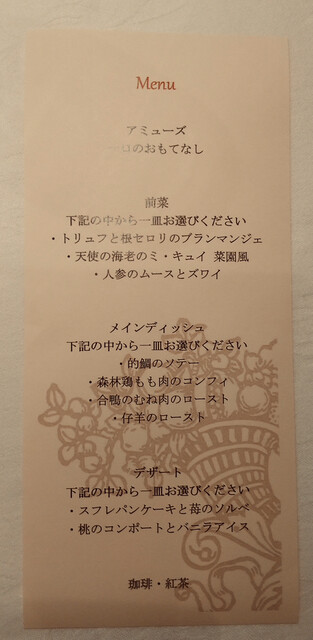 Menu
アミューズ
一口のおもてなし
前菜
下記の中から一皿お選びください
・トリュフと根セロリのブランマンジェ
・天使の海老のミ・キュイ 菜園風
・人参のムースとズワイ
メインディッシュ
下記の中から一皿お選びください
・的鯛のソテー
・森林鶏もも肉のコンフィ
・合鴨のむね肉のロースト
・仔羊のロースト
デザート
下記の中から一皿お選びください
・スフレパンケーキと苺のソルベ
・桃のコンポートとバニラアイス
珈琲・紅茶